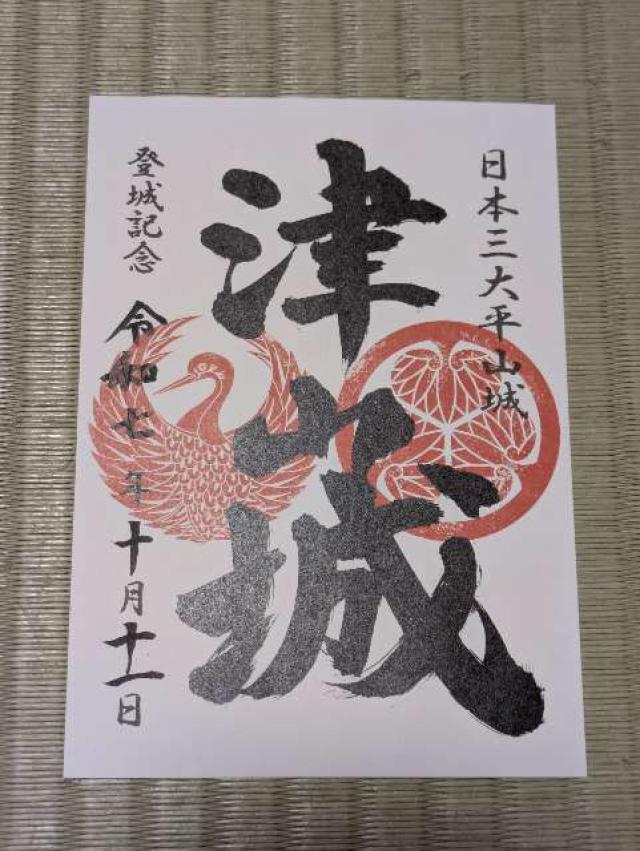 日本三大平山城
津山城
登城記念
令和七年十月十一日